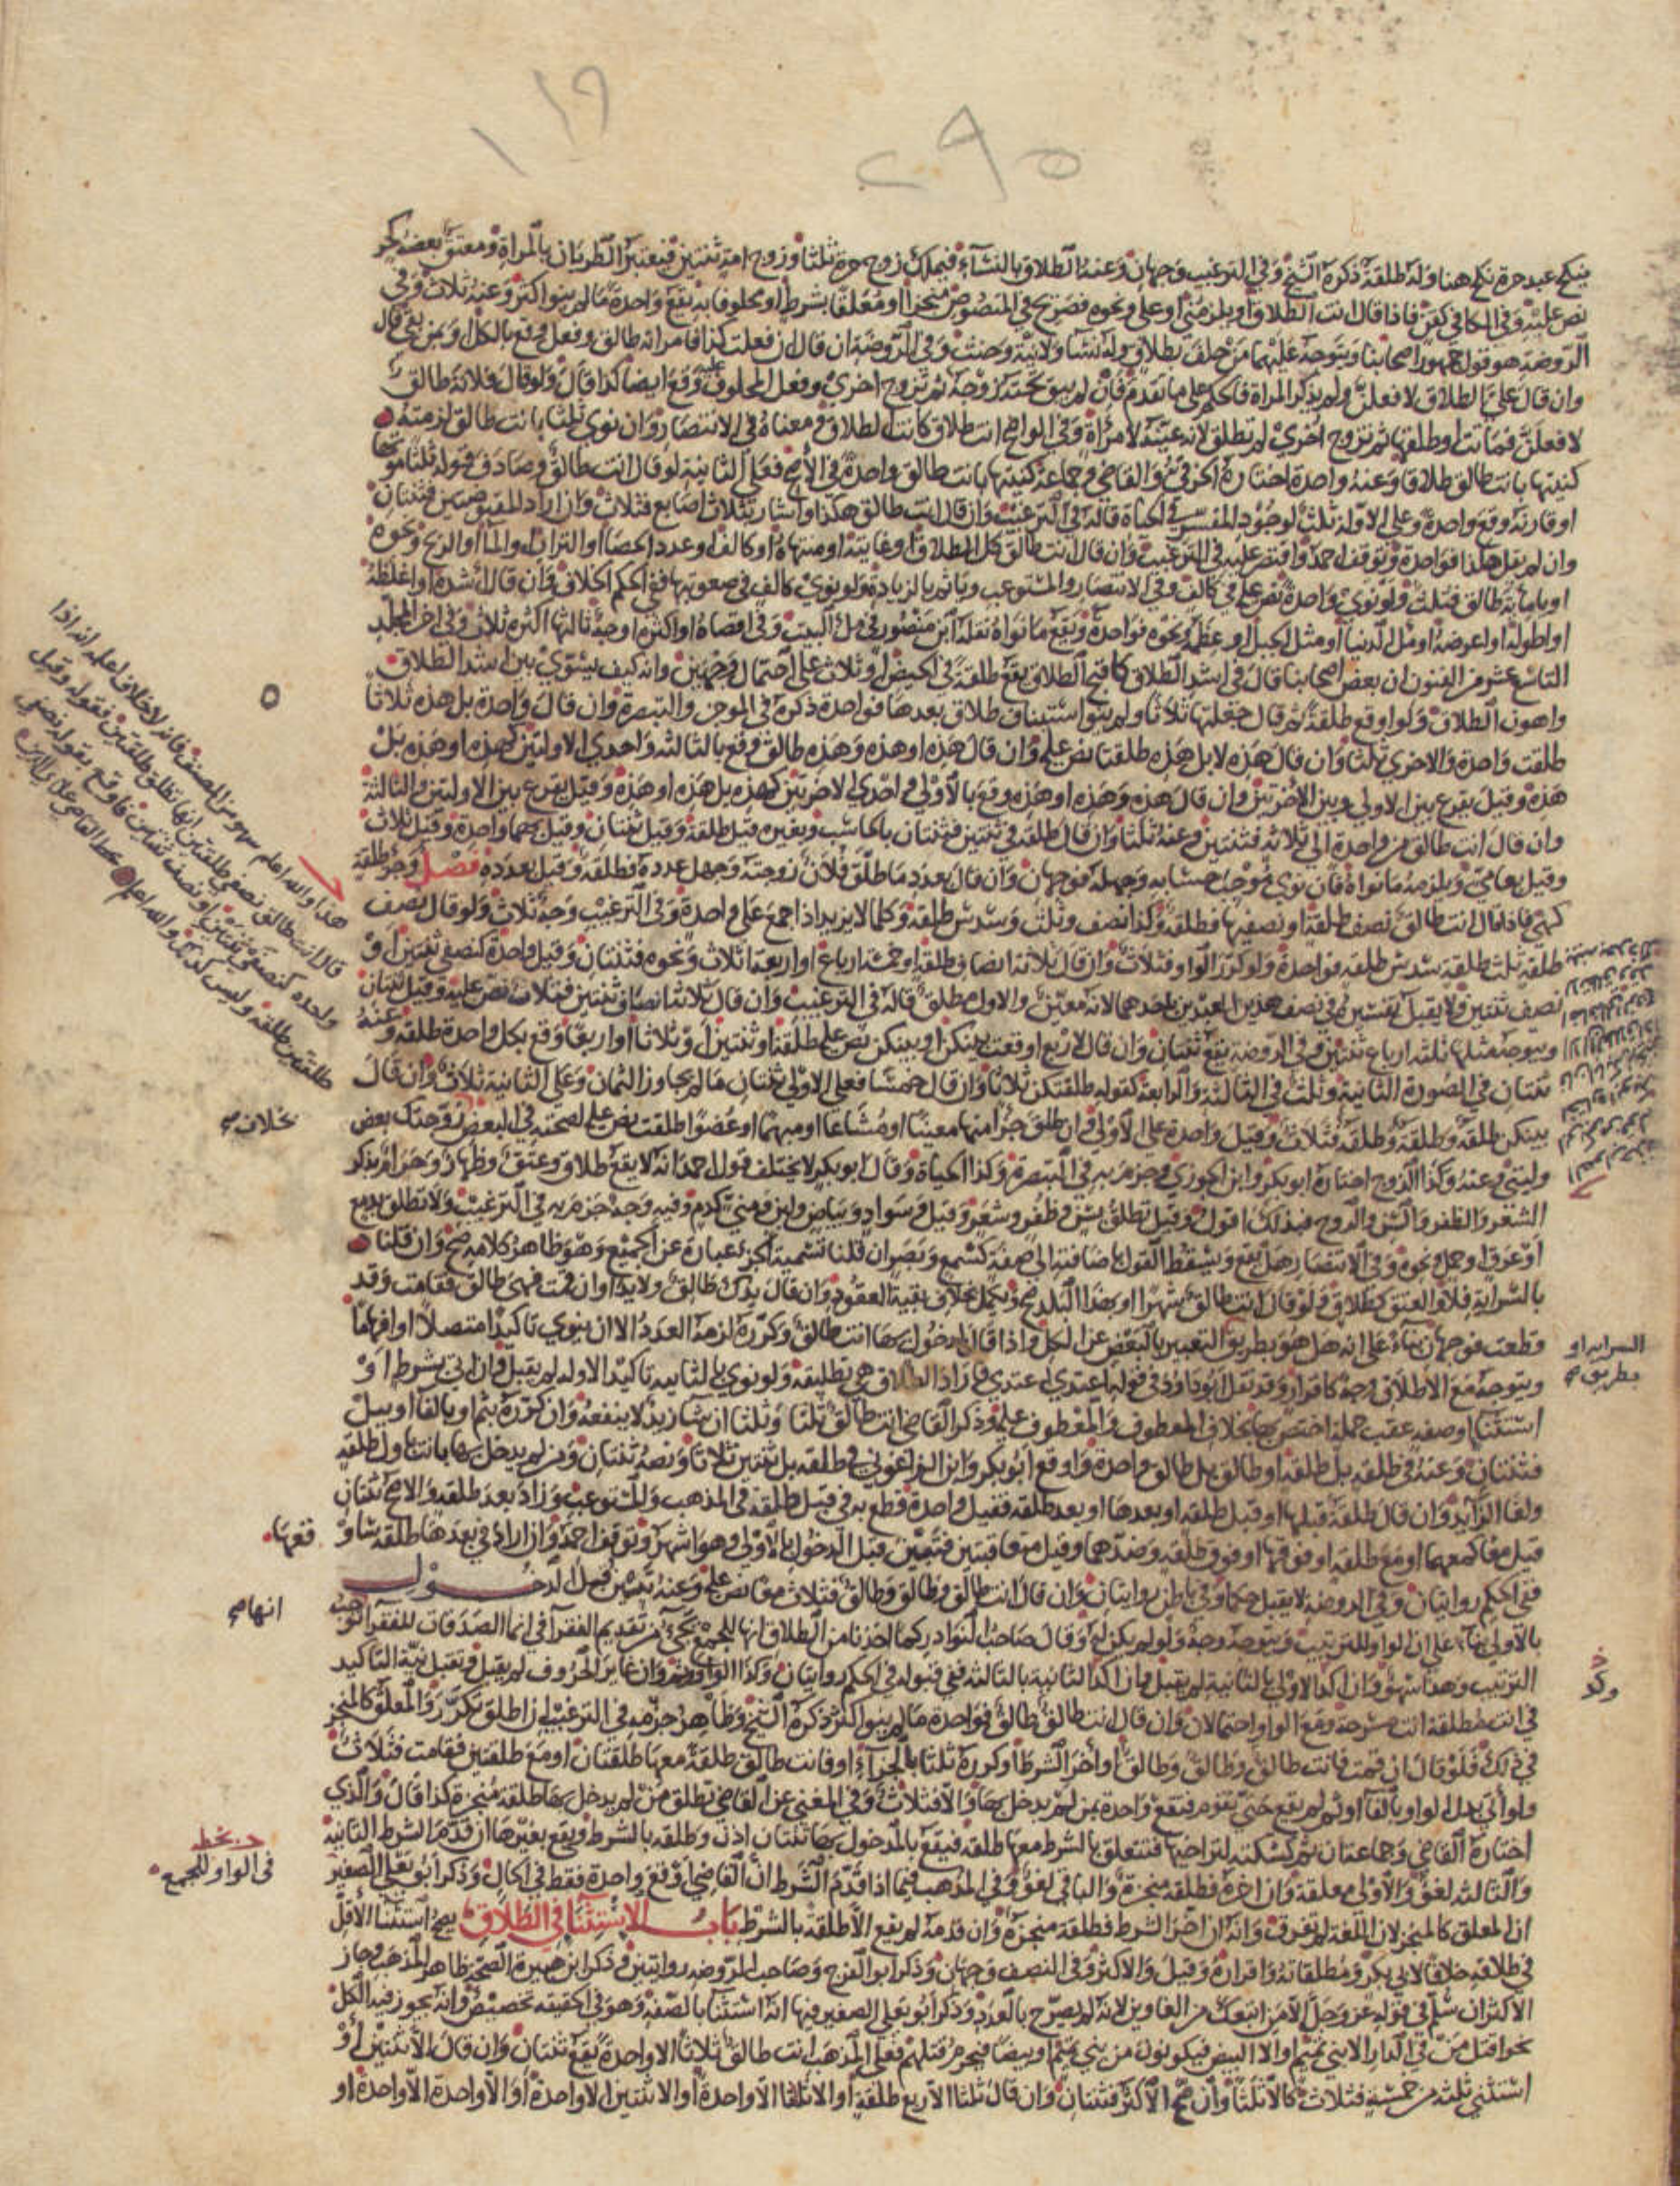 ١١٩
٢٩٥
ينكح عبد حرة نكح هنا وله طلقة ذكره الشيخ وفي الترغيب وجهان وعنه الطلاق بالنساء فيملك زوج حرة ثلثا وزوج امة ثنتين فيعتبر الطريان بالمراة ومعتق بعضه كحر
نص عليه وفي الكافي كقن فاذا قال انت الطلاق او يلزمني او علي ونحوه فصريح في المنصوص منجزا او معلقا بشرط او محلوفا به يقع واحدة ما لم ينو اكثر وعنه ثلاث وفي
الروضة هو قول جمهور اصحابنا ويتوجه عليهما من حلف بطلاق وله نسا ولا نية وحنث وفي الروضة ان قال ان فعلت كذا فامراته طالق وفعل وقع بالكل او بمن بقي قال
وان قال علي الطلاق لا فعلن ولم يذكر المراة فالحكم على ما تقدم فان لم يبق تحته زوجة ثم تزوج اخري وفعل المحلوف عليه وقع ايضا كذا قال ولو قال فلانة طالق
لا فعلن فماتت او طلقها ثم تزوج اخري لم تطلق لانه عينه لامراة وفي الواضح انت طلاق كانت الطلاق ومعناه في الانتصار وان نوي ثلثا بانت طالق لزمته
كنيتها بانت طالق طلاقا وعنه واحدة اختاره الخرقي والقاضي وجماعة كنيتها بانت طالق واحدة في الاصح فعلى الثانية لو قال انت طالق وصادف قوله ثلثا موتها
او قارنه وقع واحدة وعلى الاولة ثلث لوجود المفسر في الحياة قاله في الترغيب وان قال انت طالق هكذا واشار بثلاث اصابع فثلاث وان اراد المقبوضتين فثنتان
وان لم يقل هكذا فواحدة وتوقف احمد واقتصر عليه في الترغيب وان قال انت طالق كل الطلاق او غايته او منتهاه او كالف او عدد الحصا او التراب والماء او الريح ونحوه
او ياماية طالق فثلث ولو نوي واحدة نص عليه في كالف وفي الانتصار والمستوعب وياثم بالزيادة ولو نوي كالف في صعوبتها ففي الحكم الخلاف وان قال اشده او اغلظه
او اطوله او اعرضه او ملء الدنيا او مثل الجبل او عظمه ونحوه فواحدة ويقع ما نواه نقله ابن منصور في ملء البيت وفي اقصاه او اكثره اوجه ثالثها اكثره ثلاث وفي اخر المجلد
التاسع عشر من الفنون ان بعض اصحابنا قال في اشد الطلاق كاقبح الطلاق يقع طلقة في الحيض او ثلاث على احتمال وجهين وانه كيف يستوي بين اشد الطلاق
واهون الطلاق ولو اوقع طلقة ثم قال جعلتها ثلاثا ولم ينو استيناف طلاق بعدها فواحدة ذكره في الموجز والتبصرة وان قال واحدة بل هذه ثلاثا
طلقت واحدة والاخري ثلثا وان قال هذه لا بل هذه طلقتا نص عليه وان قال هذه او هذه وهذه طالق وقع بالثالثة واحدي الاولتين كهذه او هذه بل
هذه وقيل يقرع بين الاولى وبين الاخرتين وان قال هذه وهذه او هذه وقع بالاولى واحدي الاخرتين كهذه بل هذه او هذه وقيل يقرع بين الاولتين والثالثة
وان قال انت طالق من واحدة الى ثلاثة فثنتين وعنه ثلثا وان قال طلقة في ثنتين فثنتان بالحاسب وبغيره قيل طلقة وقيل ثنتان وقيل بهما واحدة وقيل ثلاث
وقيل بعامي ويلزمه ما نواه فان نوي موجب حسابه وجهله فوجهان وان قال بعدد ما طلق فلان زوجته وجهل عدده فطلقة وقيل بعدده فصل وجزؤ طلقة
كهي فاذا قال انت طالق نصف طلقة او نصفيها فطلقة وكذا نصف وثلث وسدس طلقة وكلما لا يزيد اذا جمع على واحدة وفي الترغيب وجه ثلاث ولو قال نصف
طلقة ثلث طلقة سدس طلقة فواحدة ولو كرر الواو فثلاث وان قال ثلاثة انصاف طلقة او خمسة ارباع او اربعة اثلاث ونحوه فثنتان وقيل واحدة كنصفي ثنتين او
نصف ثنتين ولا يقبل تفسيره في نصف هذين العبدين باحدهما لانه معين والاول مطلق قاله في الترغيب وان قال ثلاثة انصاف ثنتين فثلاث نص عليه وقيل ثنتان
ويتوجه مثلها ثلثة ارباع ثنتين وفي الروضة يقع ثنتان وان قال لاربع اوقعت بينكن او بينكن نص عليه طلقة او ثنتين او ثلاثا او اربعا وقع بكل واحدة طلقة وعنه
ثنتان في الصورة الثانية وثلث في الثالثة والرابعة كقوله طلقتكن ثلاثا وان قال خمسا فعلى الاولى ثنتان ما لم يجاوز الثمان وعلى الثانية ثلاث وان قال
بينكن طلقة وطلقة وطلقة فثلاث وقيل واحدة على الاولى وان طلق جزا منها معينا او مشاعا او مبهما او عضوا طلقت نص عليه لصحته في البعض زوجتك بعض
وليتي وعنه وكذا الروح اختاره ابو بكر وابن الجوزي وجزم به في التبصرة وكذا الحياة وقال ابو بكر لا يختلف قول احمد انه لا يقع طلاق وعتق وظهار وحرام بذكر
الشعر والظفر والسن والروح فبذلك اقول وقيل تطلق بسن وظفر وشعر وقيل وسواد وبياض ولبن ومني كدم وفيه وجه جزم به في الترغيب ولا تطلق بدمع
او عرق او حمل ونحوه وفي الانتصار هل يقع ويسقط القول باضافته الى صفة كسمع وبصر ان قلنا تسمية الجزء عبارة عن الجميع وهو ظاهر كلامه صح وان قلنا
بالسراية فلا والعتق كطلاق ولو قال انت طالق شهرا او بهذا البلد صح وتكمل بخلاف بقية العقود وان قال يدك طالق ولا يد او ان قمت فهي طالق فقامت وقد
قطعت فوجهان بناء على انه هل هو بطريق التعبير بالبعض عن الكل واذا قال لمدخول بها انت طالق وكرره لزمه العدد الا ان ينوي تاكيدا متصلا او افهاما
ويتوجه مع الاطلاق وجه كاقرار وقد نقل ابو داود في قوله اعتدي اعتدي فاراد الطلاق هي تطليقة ولو نوي بالثانية تاكيد الاولة لم يقبل وان اتى بشرط او
استثنا او صفة عقب جملة اختص بها بخلاف المعطوف والمعطوف عليه وذكر القاضي انت طالق ثلثا وثلثا ان شا زيد لا ينفعه وان كرره بثم او بالفا او ببل
فثنتان وعنه في طلقة بل طلقة او طالق بل طالق واحدة واوقع ابو بكر وابن الزاغوني في طلقة بل ثنتين ثلاثا ونصه ثنتان ومن لم يدخل بها بانت باول طلقة
ولغا الزايد وان قال طلقة قبلها او قبل طلقة او بعدها او بعد طلقة فقيل واحدة قطع به في قبل طلقة في المذهب والمستوعب وزاد بعد طلقة والاصح ثنتان
قيل معا كمعها او مع طلقة او فوقها او فوق طلقة وضدهما وقيل متعاقبتين فتبين قبل الدخول بالاولى وهو اشهر وتوقف احمد وان اراد في بعدها طلقة ساو
ففي الحكم روايتان وفي الروضة لا يقبل حكما وفي باطن روايتان وان قال انت طالق وطالق وطالق فثلاث معا نص عليه وعنه تبين قبل الدخول
بالاولى بناء على ان الواو للترتيب ويتوجه وجه ولو لم يكن له وقال صاحب النوادر كما اخذنا من الطلاق انها للجمع تجيء من تقديم الفقرا في انما الصدقات للفقرا الوجب
الترتيب وهذا سهو وان اكد الاولى بالثانية لم يقبل وان اكد الثانية بالثالثة ففي قبوله في الحكم روايتان وكذا الواو وثم وان غاير الحروف لم يقبل ويقبل نية التاكيد
في انت مطلقة انت مسرحة ومع الواو احتمالان وان قال انت طالق طالق فواحدة ما لم ينو اكثر ذكره الشيخ وظاهر جزمه في الترغيب ان اطلق تكرر والمعلق كالمنجز
في ذلك فلو قال ان قمت فانت طالق وطالق وطالق او اخر الشرط او كرره ثلثا بالجزاء او فانت طالق طلقة معها طلقتان او مع طلقتين فقامت فثلاث
ولو اتى بدل الواو بالفا او ثم لم يقع حتى تقوم فتقع واحدة بمن لم يدخل بها والا فثلاث وفي المغني عن القاضي تطلق من لم يدخل بها طلقة منجزة كذا قال والذي
اختاره القاضي وجماعة ان ثم كسكتة لتراخيها فتتعلق بالشرط معها طلقة فيقع بالمدخول بها ثنتان اذن وطلقة بالشرط ويقع بغيرها ان قدم الشرط الثانية
والثالثة لغو والاولى معلقة وان اخره فطلقة منجزة والباقي لغو وفي المذهب فيما اذا قدم الشرط ان القاضي اوقع واحدة فقط في الحال وذكر ابو يعلى الصغير
ان المعلق كالمنجز لان اللغة لم تفرق وانه ان اخر الشرط فطلقة منجزة وان قدمه لم يقع الا طلقة بالشرط باب الاستثنا في الطلاق يصح استثنا الاقل
في طلاقه خلافا لابي بكر ومطلقاته واقراره وقيل والاكثر وفي النصف وجهان وذكر ابو الفرج وصاحب الروضة روايتين وذكر ابن هبيرة الصحة ظاهر المذهب وجاز
الاكثر ان سلم في قوله عز وجل الا من اتبعك من الغاوين لانه لم يصرح بالعدد وذكر ابو يعلى الصغير فيها انه استثنا بالصفة وهو في الحقيقة تخصيص وانه يجوز فيه الكل
نحو اقتل من في الدار الا بني تميم او الا البيض فيكونون من بني تميم او بيضا فيحرم قتلهم فعلى المذهب انت طالق ثلاثا الا واحدة يقع ثنتان وان قال الا ثنتين او
استثنى ثلثة من خمسة فثلاث كالا ثلثا وان صح الاكثر فثنتان وان قال ثلثا الا ربع طلقة او الا ثلثا الا واحدة او الا ثنتين الا واحدة او الا واحدة الا واحدة او
هذا والله اعلم سهو من المصنف فانه لا خلاف اعلمه انه اذا
قال انت طالق نصفي طلقتين انها تطلق طلقتين بقوله وقيل
واحدة كنصفي ثنتين او نصف ثنتين فاوقع بقوله نصفي
طلقتين طلقة وليس كذلك والله اعلم
بخلاف صح
السراية او
بطريق صح
فعنها
انها صح
وكذ
بخطه
في الواو للجمع